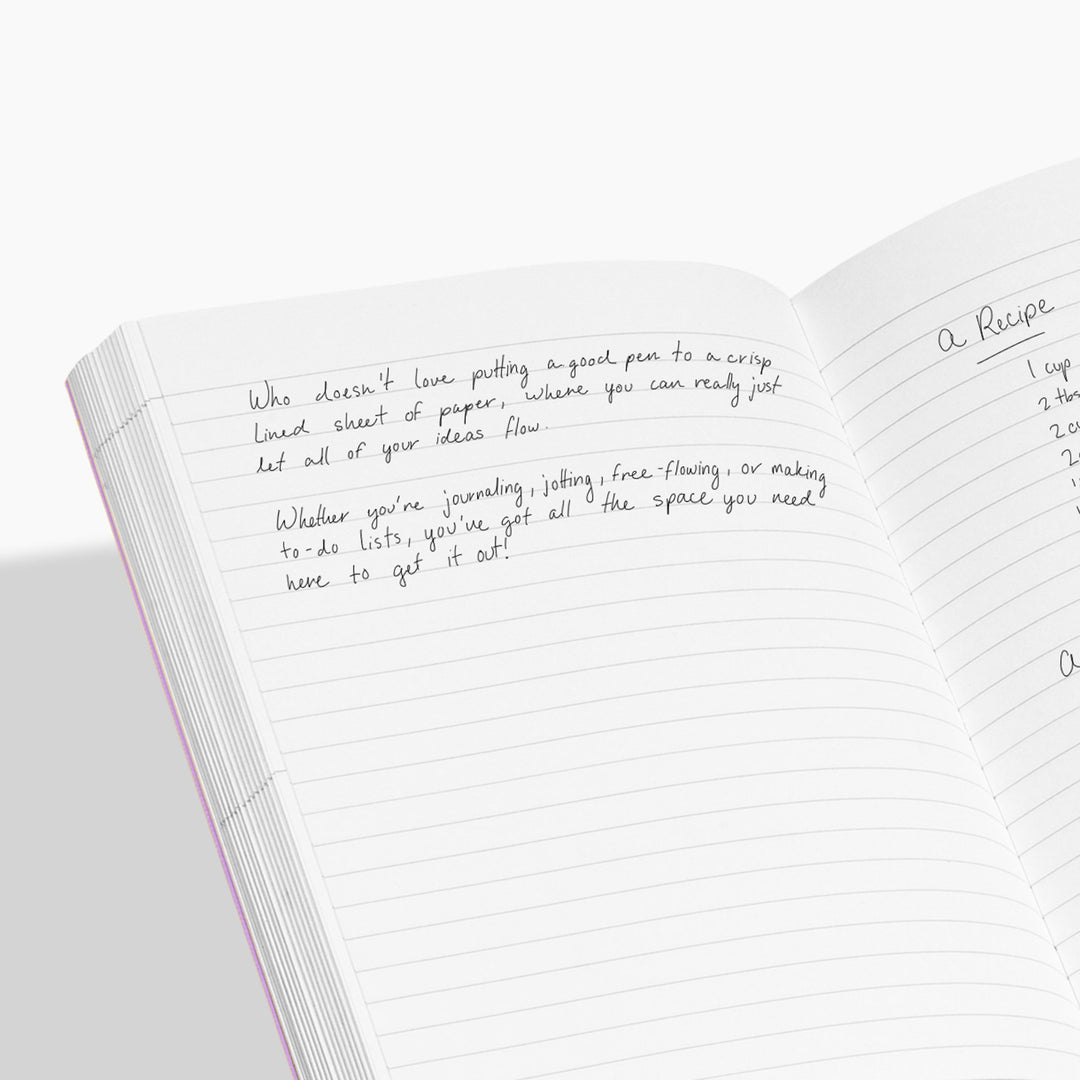 Who doesn't love putting a good pen to a crisp
lined sheet of paper, where you can really just
let all of your ideas flow.
Whether you're journaling, jotting, free-flowing, or making
to-do lists, you've got all the space you need
here to get it out!
a Recipe
1 cup
2 tbs
2 cu
2